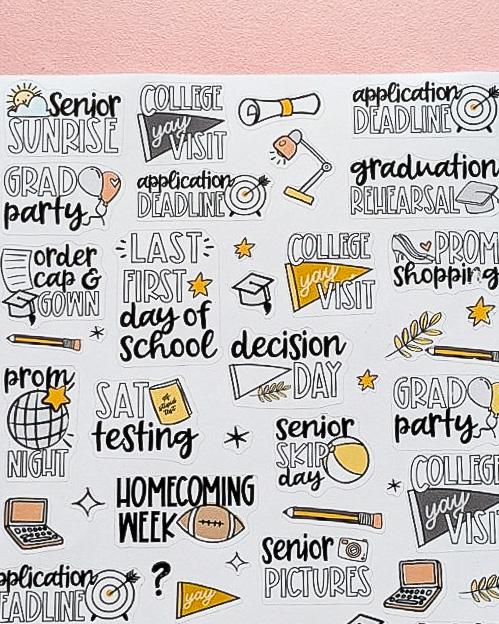 Senior
SUNRISE
COLLEGE
yay
VISIT
application
DEADLINE
GRAD
party
application
DEADLINE
graduation
REHEARSAL
order
cap &
GOWN
LAST
FIRST
day of
school
COLLEGE
yay
VISIT
PROM
shopping
decision
DAY
prom
NIGHT
SAT
testing
senior
SKIP
day
GRAD
party
HOMECOMING
WEEK
COLLEGE
yay
VISIT
senior
PICTURES
application
DEADLINE
?
yay